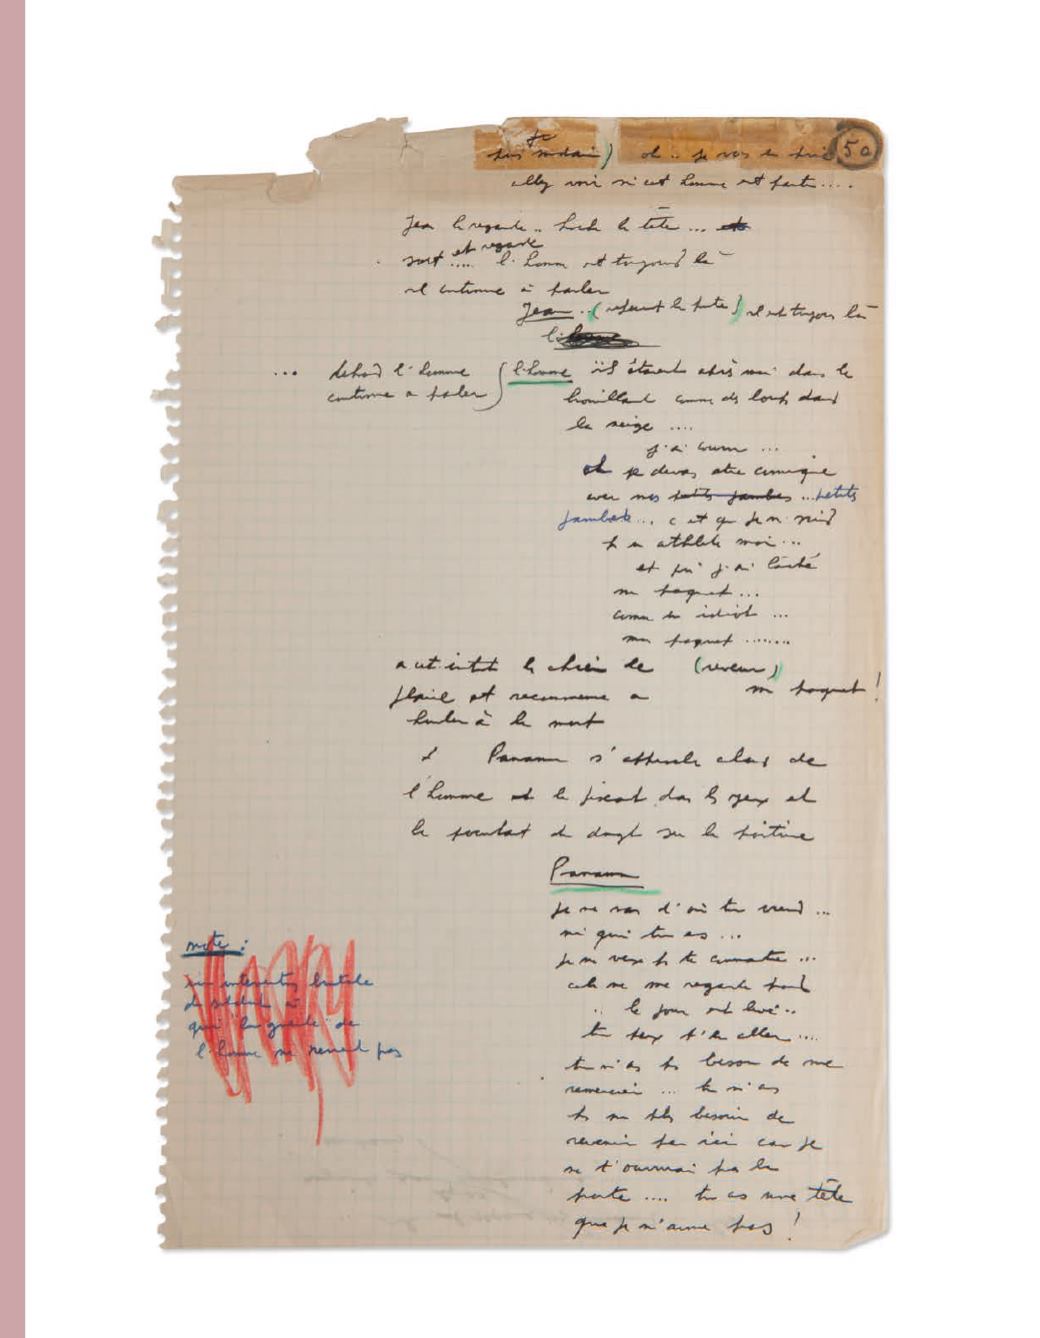 50
puis soudain) oh .. je vais
allez voir si cet homme est parti....
Jean le regarde .. hoche la tête ...
et regarde
sort .... l'homme est toujours là
il continue à parler
Jean .. (refermant la porte) il est toujours là
... dehors l'homme
continue a parler
l'homme ils étaient après moi dans le
brouillard comme des loups dans
la neige ....
j'ai couru ...
oh je devais être comique
avec mes petits jambes ... petits
jambes ... c est que je ne suis
pas un athlète moi ...
et puis j'ai lâché
mon paquet ...
comme un idiot ...
mon paquet .......
(reveur)
mon paquet !
a cet instant le chien
flaire et recommence a
hurler à la mort
Panama s'approche alors de
l'homme et le fixant dans les yeux et
le doigt sur la poitrine
Panama
je ne sais d'où tu viend ...
ni qui tu es ...
je ne veux pas te connaitre ...
cela ne me regarde pas
.. le jour est levé ..
tu peux t'en aller ....
tu n'as pas besoin de me
remercier ... tu n'as
pas non plus besoin de
revenir par ici car je
ne t'ouvrirai pas la
porte .... tu as une tête
que je n'aime pas !
note :
intervention brutale
du soldat à
qui la gueule de
l'homme ne revient pas